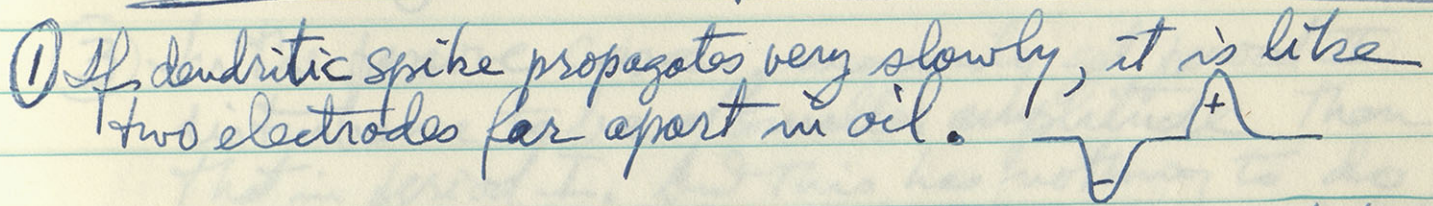 ① If dendritic spike propagates very slowly, it is like
two electrodes far apart in oil.
- +